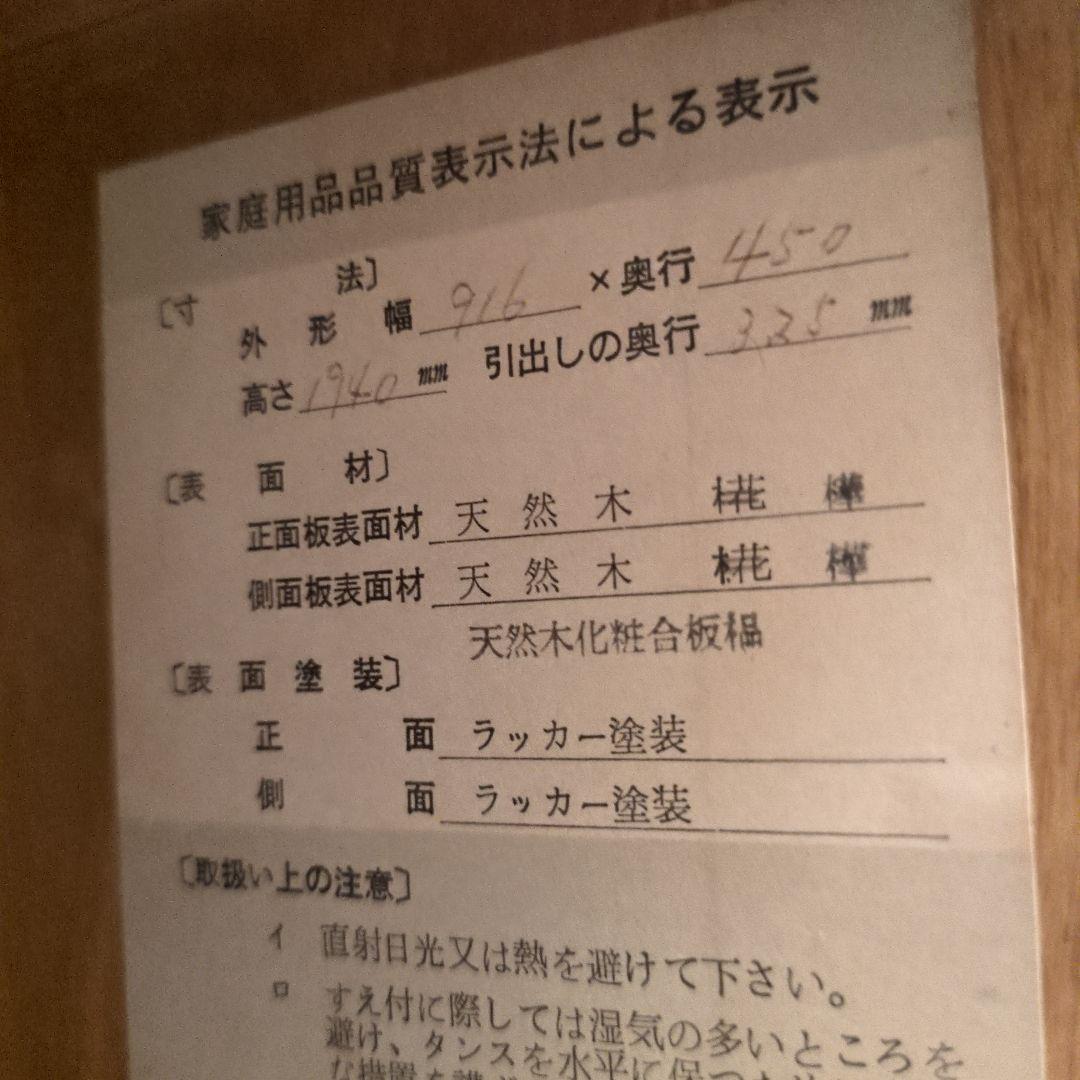 家庭用品品質表示法による表示
〔寸法〕
外形幅 916 ×奥行 450
高さ 1940 mm 引出しの奥行 325 mm
〔表面材〕
正面板表面材 天然木 椛 樺
側面板表面材 天然木 椛 樺
天然木化粧合板
〔表面塗装〕
正面 ラッカー塗装
側面 ラッカー塗装
〔取扱い上の注意〕
イ 直射日光又は熱を避けて下さい。
ロ すえ付に際しては湿気の多いところを
避け、タンスを水平に保つため
な措置を講